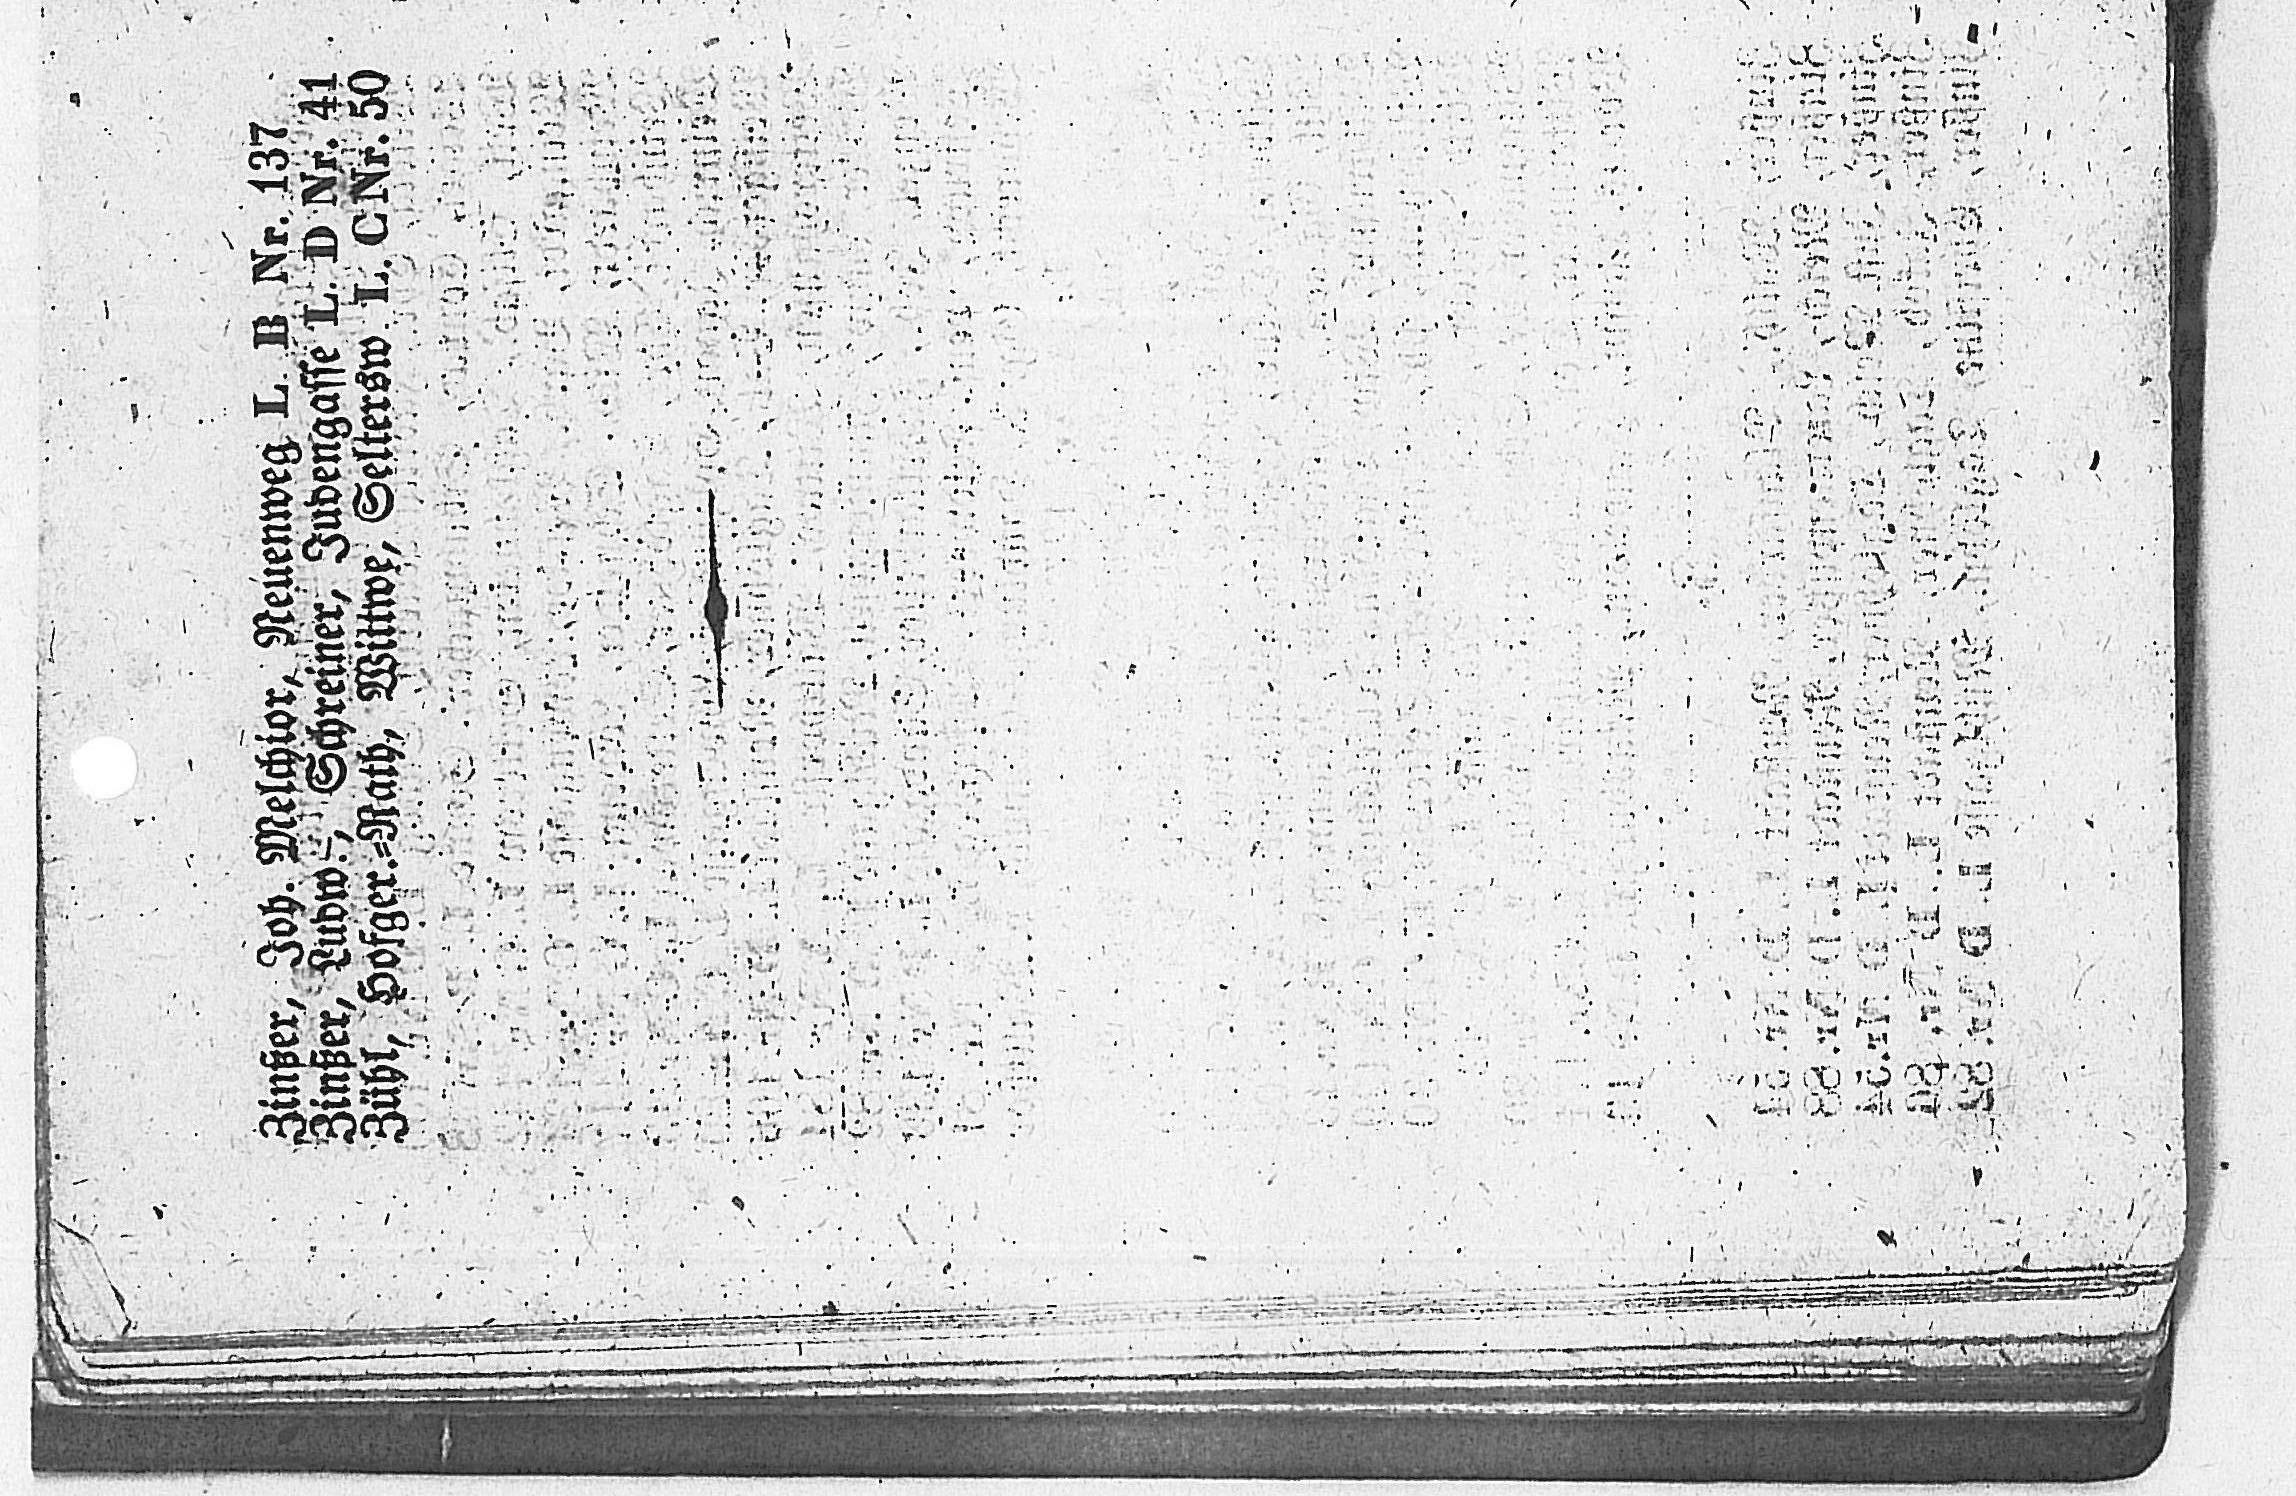 Zinßer, Joh. Melchior, Neuenweg L. B Nr. 137
Zinßer, Ludw., Schreiner, Judengasse L. D Nr. 41
Zühl, Hofger.=Rath, Wittwe, Seltersw. L. C Nr. 50